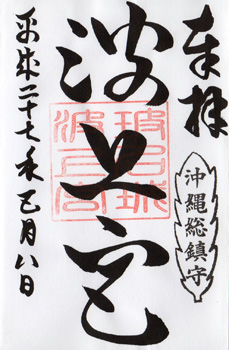 奉拝
沖縄総鎮守
波上宮
平成二十七年五月八日